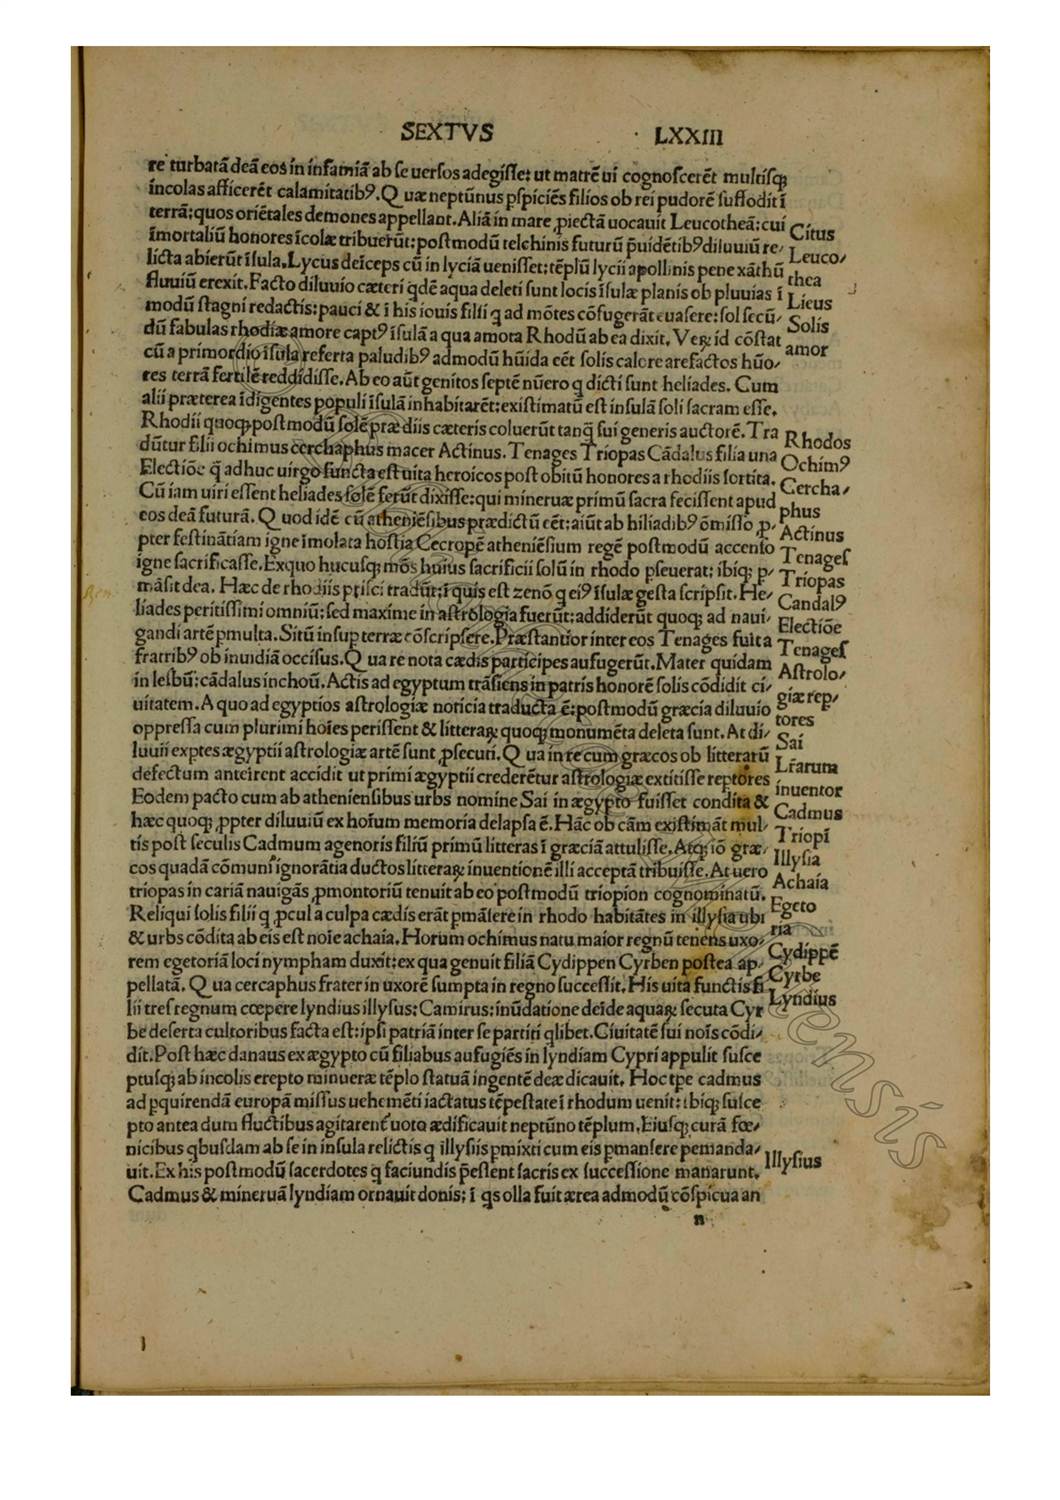 SEXTVS LXXIII
re turbatā deā eos in infamiā ab se uersos adegisse: ut matrē ui cognoscerēt multisq;
incolas afficerēt calamitatibꝰ. Quæ neptūnus pspiciēs filios ob rei pudorē suffodit ī
terrā: quos oriētales demones appellant. Aliā in mare ꝓiectā uocauit Leucotheā: cui
īmortaliū honores īcolæ tribuerūt: postmodū telchinis futurū p̄uidētibꝰ diluuiū re/
licta abierūt īsula. Lycus deīceps cū in lyciā uenisset: tēplū lycii apollinis pene xāthū
fluuiū erexit. Facto diluuio cæteri qdē aqua deleti sunt locis īsulæ planis ob pluuias ī
modū stagni redactis: pauci & ī his iouis filii q ad mōtes cōfugerāt euasere: sol secū/
dū fabulas rhodiæ amore captꝰ īsulā a qua amota Rhodū ab ea dixit. Veꝝ id cōstat
cū a primordio īsula referta paludibꝰ admodū hūida eēt solis calore arefactos hūo/
res terrā fertilē reddidisse. Ab eo aūt genitos septē nūero q dicti sunt heliades. Cum
alii præterea īdigentes populi īsulā inhabitarēt: existimatū est insulā soli sacram esse.
Rhodii quoq; postmodū solē præ diis cæteris coluerūt tanq̄ sui generis auctorē. Tra
dūtur filii ochimus cerchaphus macer Actinus. Tenages Triopas Cādalus filia una
Electiōe q̄ adhuc uirgo functa est uita heroicos post obitū honores a rhodiis sortita.
Cū iam uiri essent heliades solē ferūt dixisse: qui mineruæ primū sacra fecissent apud
eos deā futurā. Quod idē cū atheniēsibus prædictū eēt: aiūt ab hiliadibꝰ ōmisso ꝓ/
pter festinātiam igne īmolata hostia Cecropē atheniēsium regē postmodū accenso
igne sacrificasse. Exquo hucusq; mōs huius sacrificii solū in rhodo pseuerat: ibiq; p/
māsit dea. Hæc de rhodiis prisci tradūt: ī quis est zenō q eiꝰ īsulæ gesta scripsit. He/
liades peritissimi omniū: sed maxime in astrologia fuerūt: addiderūt quoq; ad naui/
gandi artē pmulta. Sitū insup terræ cōscripsere. Præstantior inter eos Tenages fuit a
fratribꝰ ob inuidiā occisus. Qua re nota cædis participes aufugerūt. Mater quidam
in lesbū: cādalus inchoū. Actis ad egyptum trāsiens in patris honorē solis cōdidit ci/
uitatem. A quo ad egyptios astrologiæ noticia traducta ē: postmodū græcia diluuio
oppressa cum plurimi hoīes perissent & litteraꝝ quoq; monumēta deleta sunt. At di/
luuii exptes ægyptii astrologiæ artē sunt ꝓsecuti. Qua in re cum græcos ob litterarū
defectum anteirent accidit ut primi ægyptii crederētur astrologiæ extitisse reptores
Eodem pacto cum ab atheniensibus urbs nomine Sai in ægypto fuisset condita &
hæc quoq; ꝓpter diluuiū ex hoīum memoria delapsa ē. Hāc ob cām existimāt mul/
tis post seculis Cadmum agenoris filiū primū litteras ī græciā attulisse. Atq; iō græ/
cos quadā cōmuni ignorātia ductos litteraꝝ inuentionē illi acceptā tribuisse. At uero
triopas in cariā nauigās ꝓmontoriū tenuit ab eo postmodū triopion cognominatū.
Reliqui solis filii q ꝓcul a culpa cædis erāt pmāsere in rhodo habitātes in illysia ubi
& urbs cōdita ab eis est noīe achaia. Horum ochimus natu maior regnū tenens uxo/
rem egetoriā loci nympham duxit: ex qua genuit filiā Cydippen Cyrben postea ap/
pellatā. Qua cercaphus frater in uxorē sumpta in regno successit. His uita functis fi
lii tres regnum cœpere lyndius illysus: Camirus: inūdatione deīde aquaꝝ secuta Cyr
be deserta cultoribus facta est: ipsi patriā inter se partiti qlibet. Ciuitatē sui noīs cōdi/
dit. Post hæc danaus ex ægypto cū filiabus aufugiēs in lyndiam Cypri appulit susce
ptusq; ab incolis erepto minueræ tēplo statuā ingentē deæ dicauit. Hoc tpe cadmus
ad pquirendā europā missus uehemēti iactatus tēpestate ī rhodum uenit: ibiq; susce
pto antea dum fluctibus agitarent uoto ædificauit neptūno tēplum. Eiusq; curā fœ/
nicibus qbusdam ab se in insula relictis q illysiis pmixti cum eis pmansere pemanda/
uit. Ex his postmodū sacerdotes q faciundis p̄essent sacris ex successione manarunt.
Cadmus & mineruā lyndiam ornauit donis: ī qs olla fuit ærea admodū cōspicua an
n
Citus
Leuco/
thea
Licus
Solis
amor
Rhodos
Ochimꝰ
Cercha/
phus
Actinus
Tenages
Triopas
Candalꝰ
Electiōe
Tenages
Astrolo/
giæ rep/
tores
Sai
Lr̄arum
inuentor
Cadmus
Triopī
Illysia
Achaia
Egeto
ria
Cydippē
Cyrbe
Lyndius
Illysius